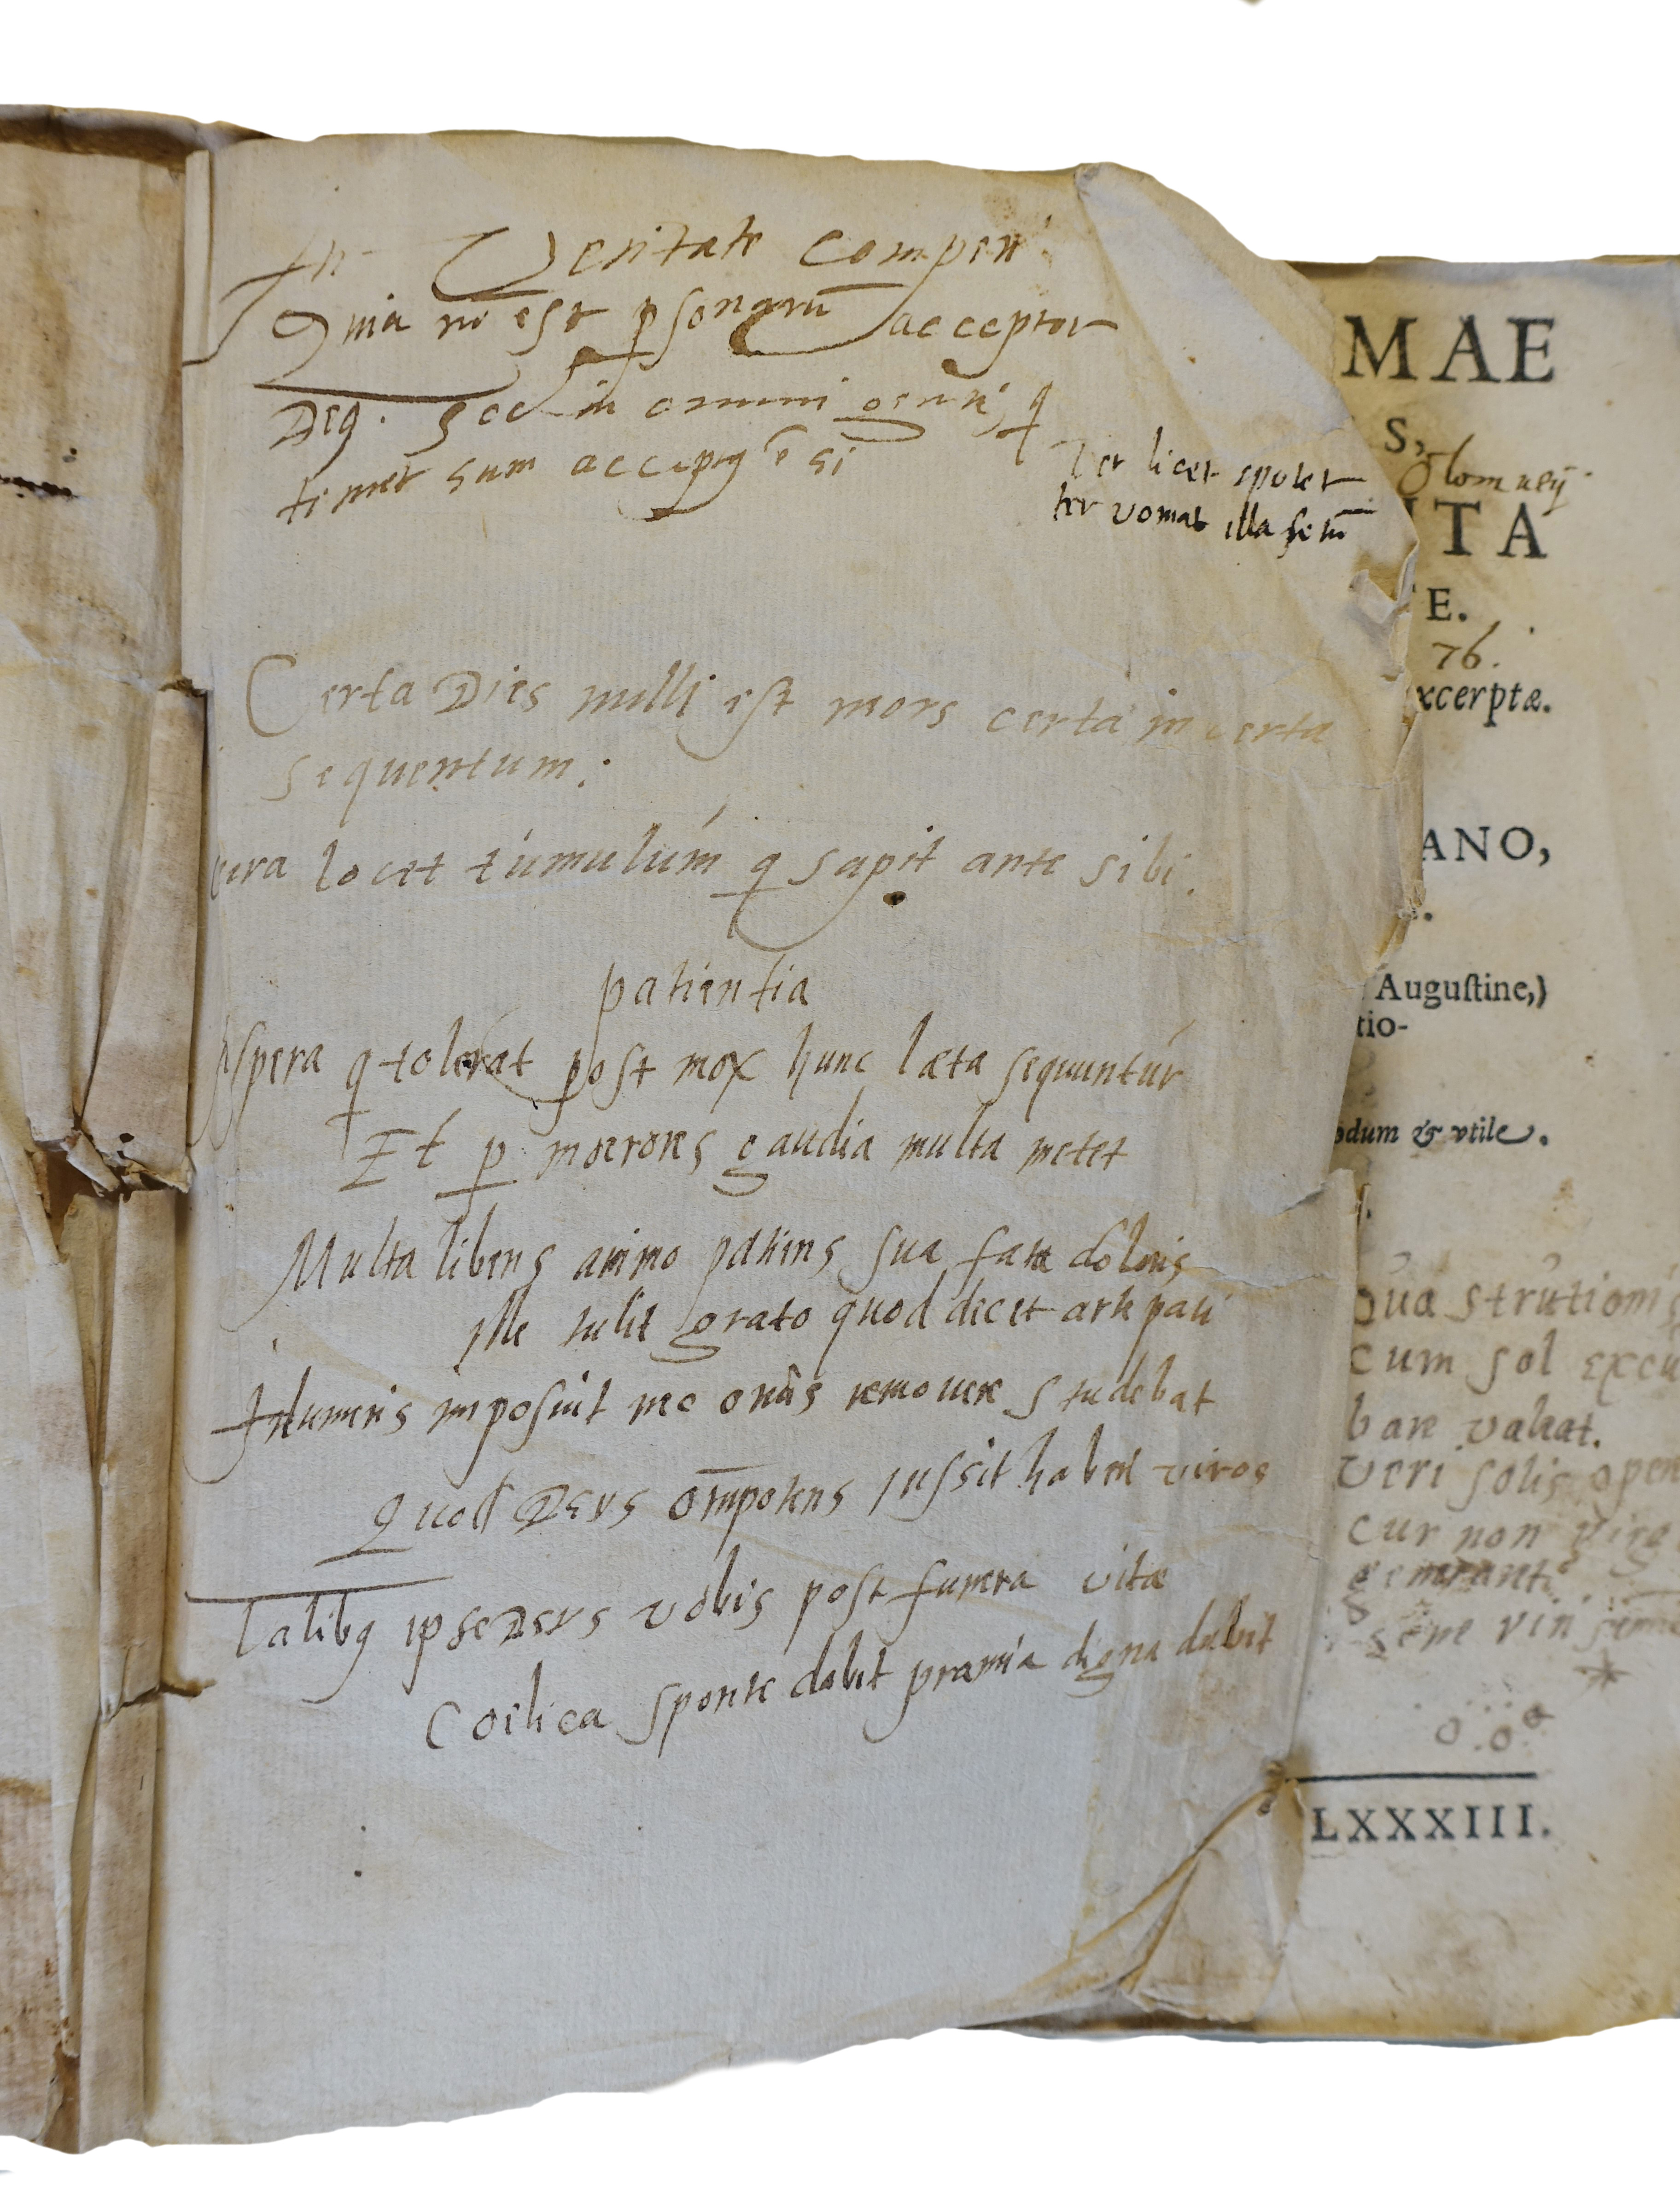 In Veritate comperi
Quia nō est psonarū acceptor
Deq. sed in omni gente q
timet eum acceptq ē ei
Ter licet epotet
ter vomat illa fetū
Certa Dies nulli est mors certa incerta
sequentum:
cura locet túmulúm q sapit ante sibi.
patientia
Aspera q tolerat post mox hunc læta sequuntúr
Et p mœrores gaudia multa metet
Multa libens animo patiens sua fata doloris
Ille tulit grato quod decet arte pati
Humeris imposuit nec onus removere studebat
Quod Deus omīpotens jussit habere viros
Talibq ipse Deus vobis post funera vitæ
Coelica sponte dabit præmia digna dabit
MAE
S,
Olomucij
TA
E.
76.
xcerptæ.
ANO,
Auguſtine,)
tio-
odum & vtile.
Qua strutioni
cum sol excu
bare valeat.
Veri solis open
cur non
LXXXIII.